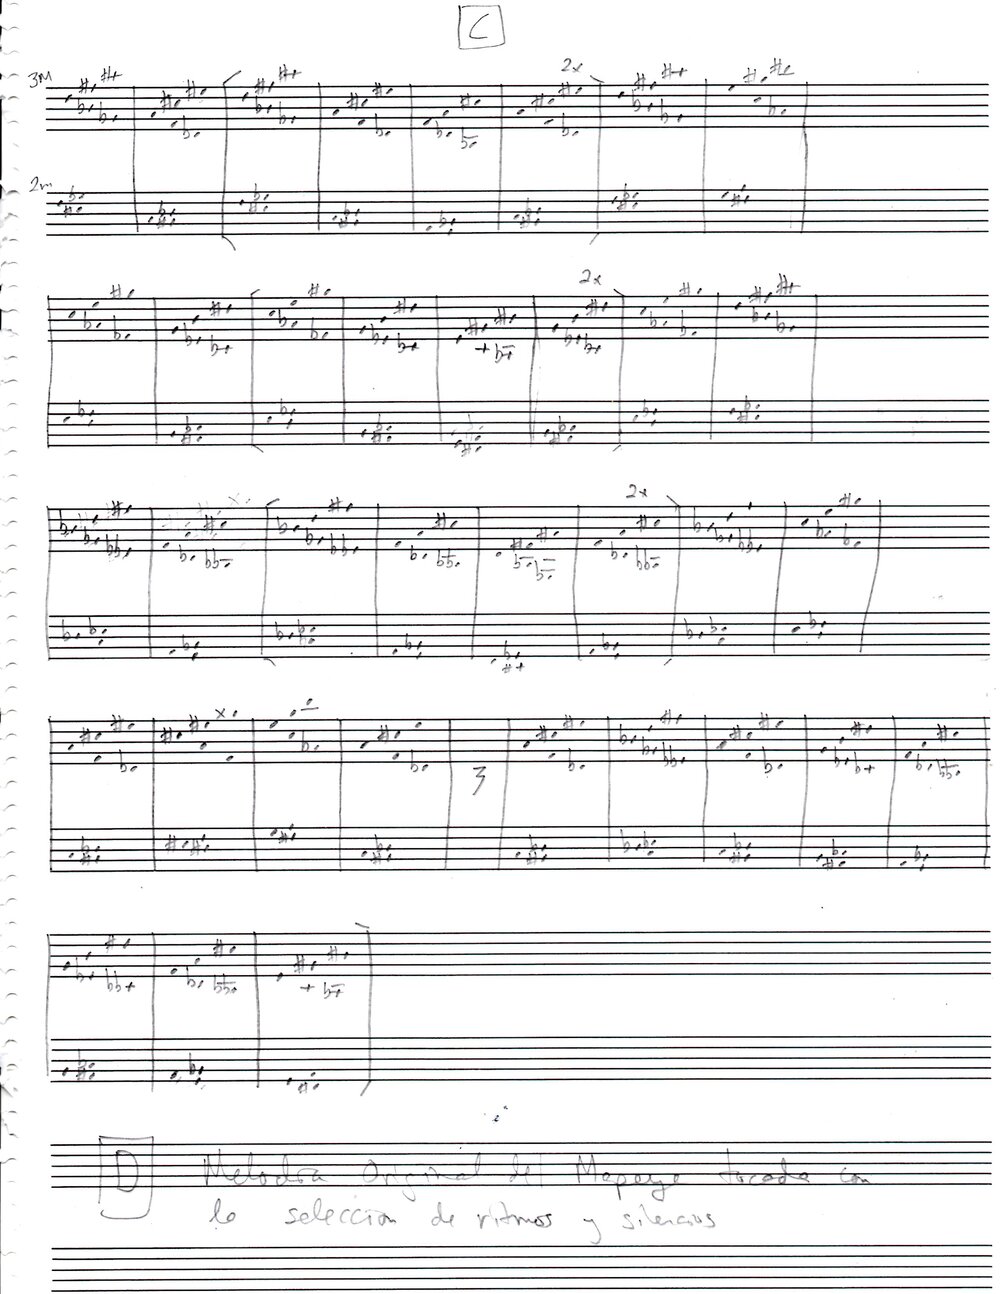 C
3M
2x
2m
2x
2x
3
D Melodia Original del Mapeye tocada con
la selección de ritmos y silencios